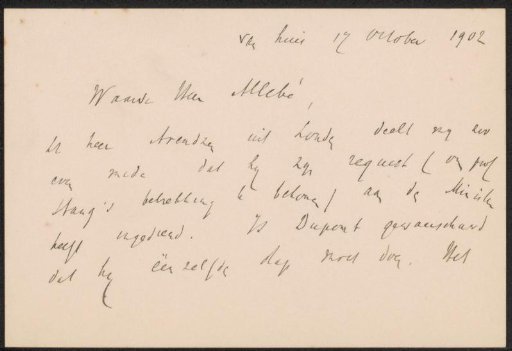 van huis 17 October 1902
Waarde Heer Allebé,
De heer Arendzen uit Londen deelt mij zoo
even mede dat hij zijn request (om prof
Stang's betrekking te bekomen) aan den Minister
heeft ingediend. Is Dupont gewaarschuwd
dat hij één zelfde stap moet doen. Het